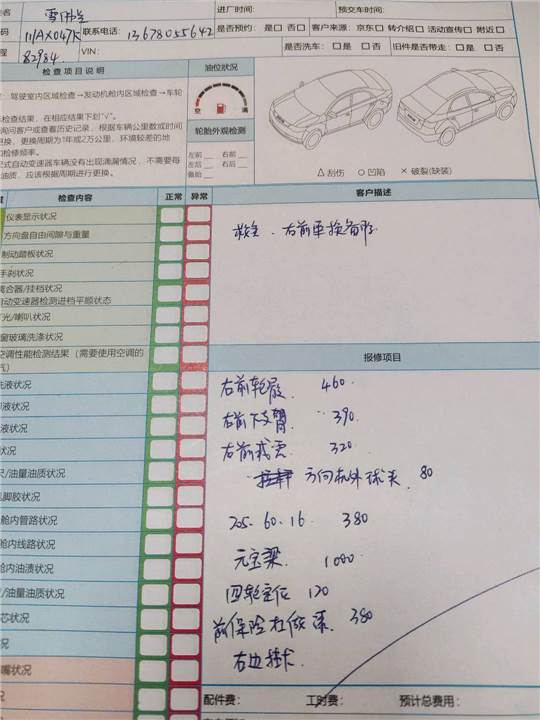 名 雪佛兰 进厂时间: 预交车时间:
码 联系电话: 13678055642 是否预约: 是□ 否□ 客户来源: 京东□ 转介绍□ 活动宣传□ 附近□
程 82984 VIN: 是否洗车: □是 □否 旧件是否带走: □是 □否
检查项目说明
油位状况
: 驾驶室内区域检查→发动机舱内区域检查→车轮
检查结果,在相应结果下划“√”。
询问客户或查看历史记录,根据车辆公里数或时间
更换,更换周期为1年或2万公里,环境较差的地
如检修频率。
式自动变速器车辆没有出现滴漏情况,不需要每
油质,应该根据周期进行更换。
空 满
轮胎外观检测
左前 右前
左后 右后
备胎
△ 刮伤 ○ 凹陷 × 破裂(缺装)
检查内容 正常 异常 客户描述
仪表显示状况
方向盘自由间隙与重量
制动踏板状况
手刹状况
离合器/挂档状况
自动变速器检测进档平顺状态
灯光/喇叭状况
窗玻璃洗涤状况
空调性能检测结果(需要使用空调的
右前车换备胎
报修项目
洗液状况
液状况
液状况
状况
/油量油质状况
脚胶状况
舱内管路状况
舱内线路状况
舱内油渍状况
/油量油质状况
芯状况
况
嘴状况
况
右前轮展 460
右前下支臂 390
右前减震 320
方向机外球头 80
205-60-16 380
元宝梁 1000
四轮定位 120
前保险杠做漆 380
右边挂卡
配件费: 工时费: 预计总费用: